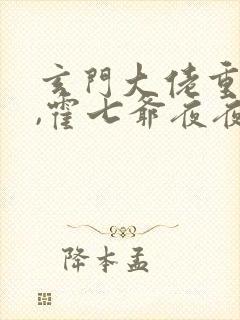 玄門大佬重
,霍七爺夜夜
降本孟